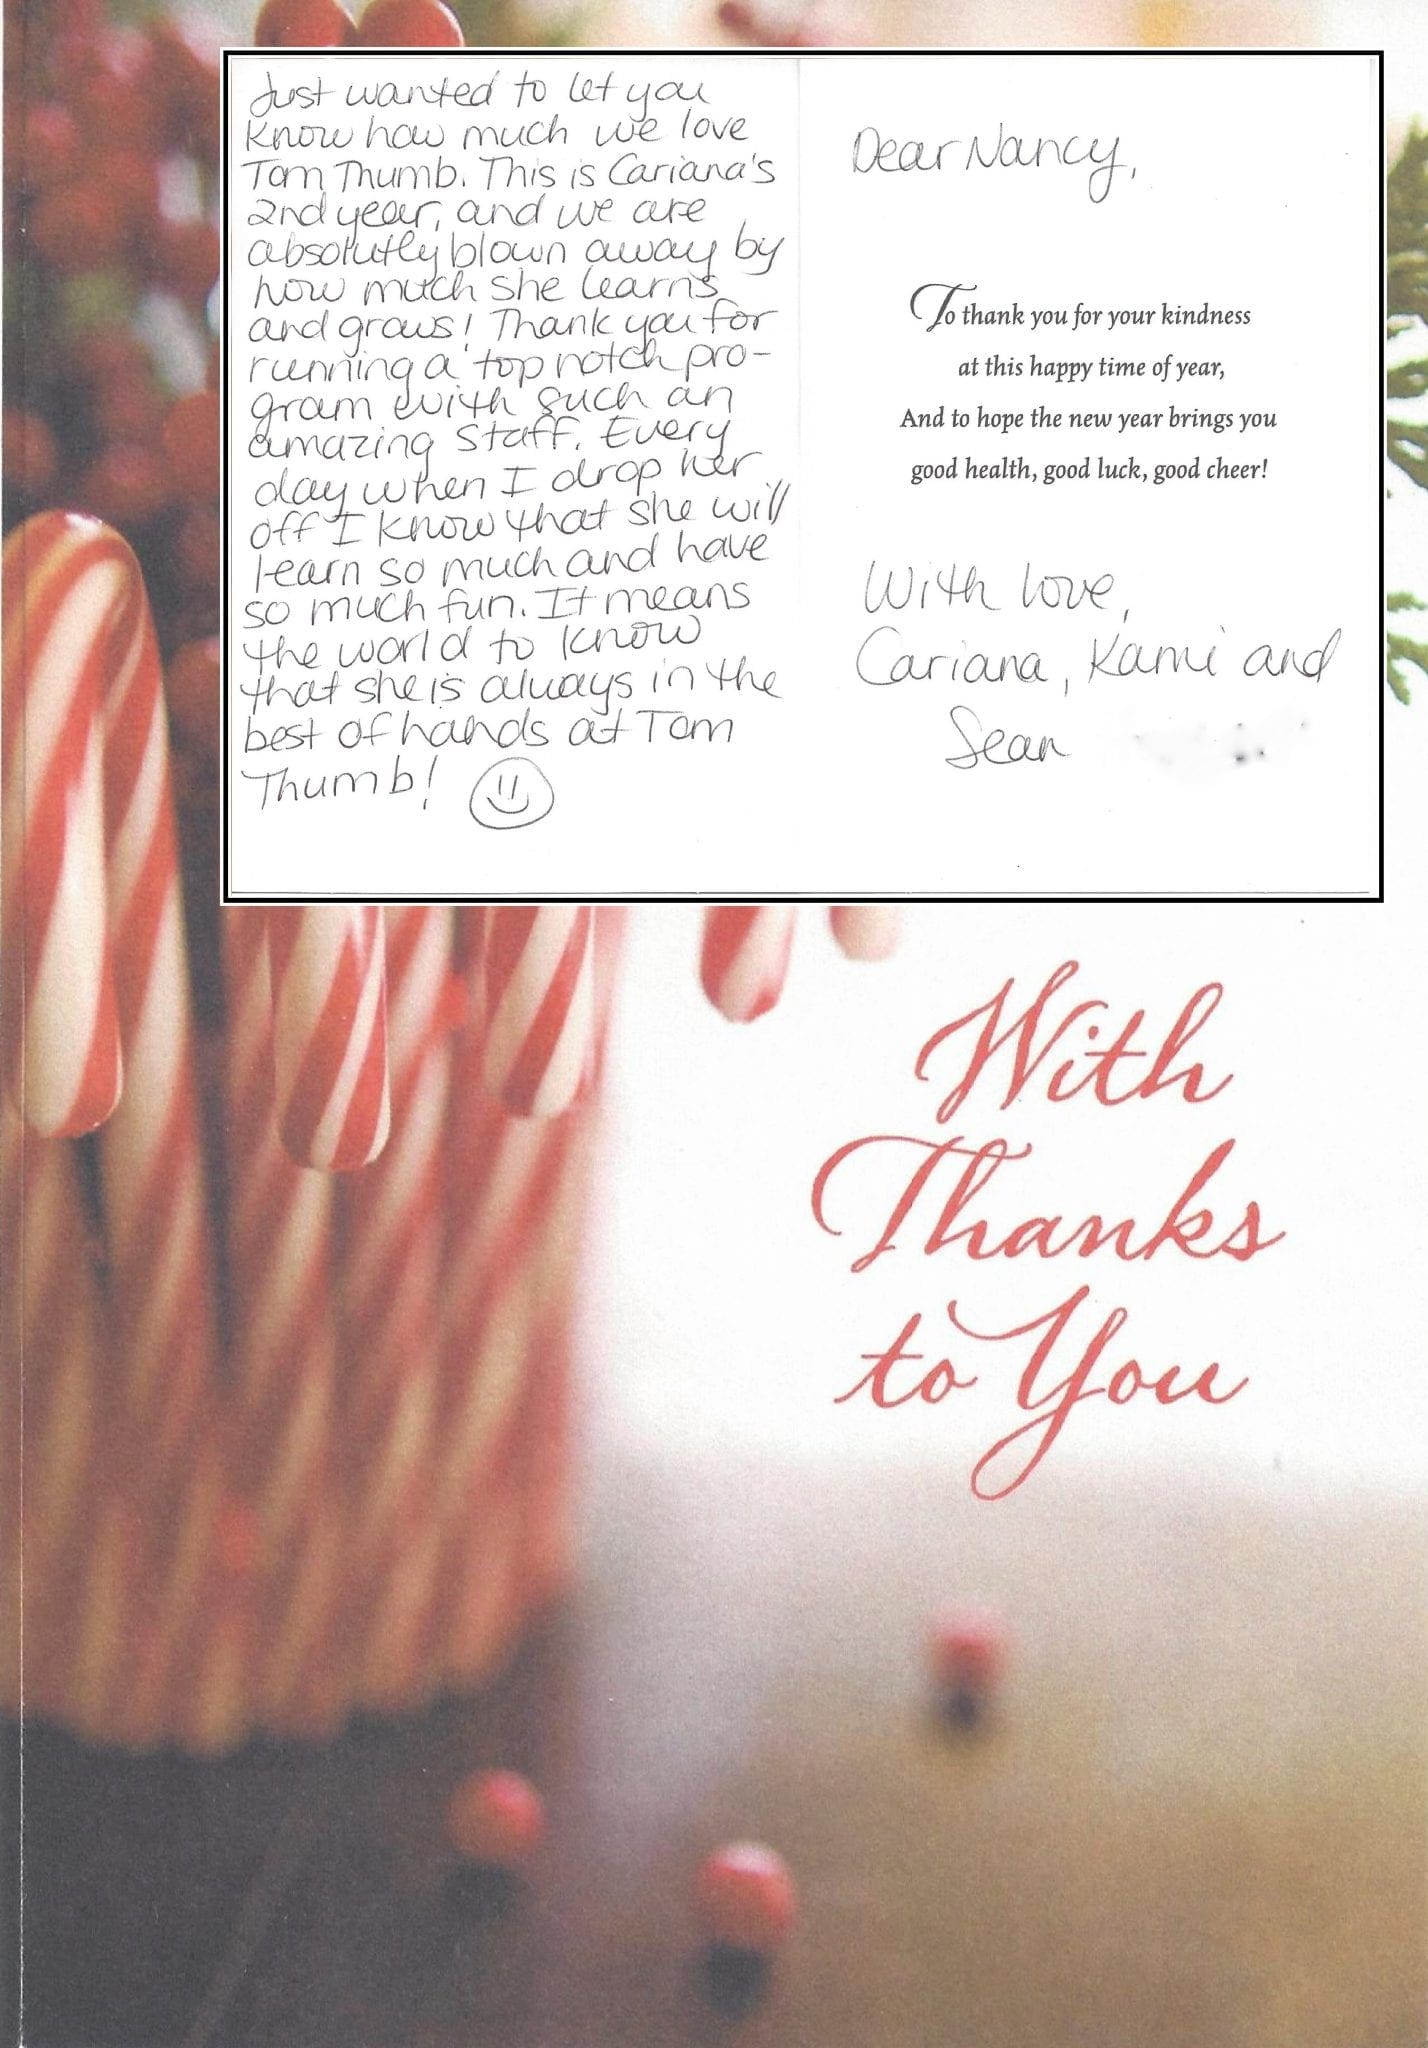 Just wanted to let you
know how much we love
Tom Thumb. This is Cariana's
2nd year, and we are
absolutely blown away by
how much she learns
and grows! Thank you for
running a top notch pro-
gram with such an
amazing staff. Every
day when I drop her
off I know that she will
learn so much and have
so much fun. It means
the world to know
that she is always in the
best of hands at Tom
Thumb!
Dear Nancy,
To thank you for your kindness
at this happy time of year,
And to hope the new year brings you
good health, good luck, good cheer!
With love,
Cariana, Kami and
Sean
With
Thanks
to You